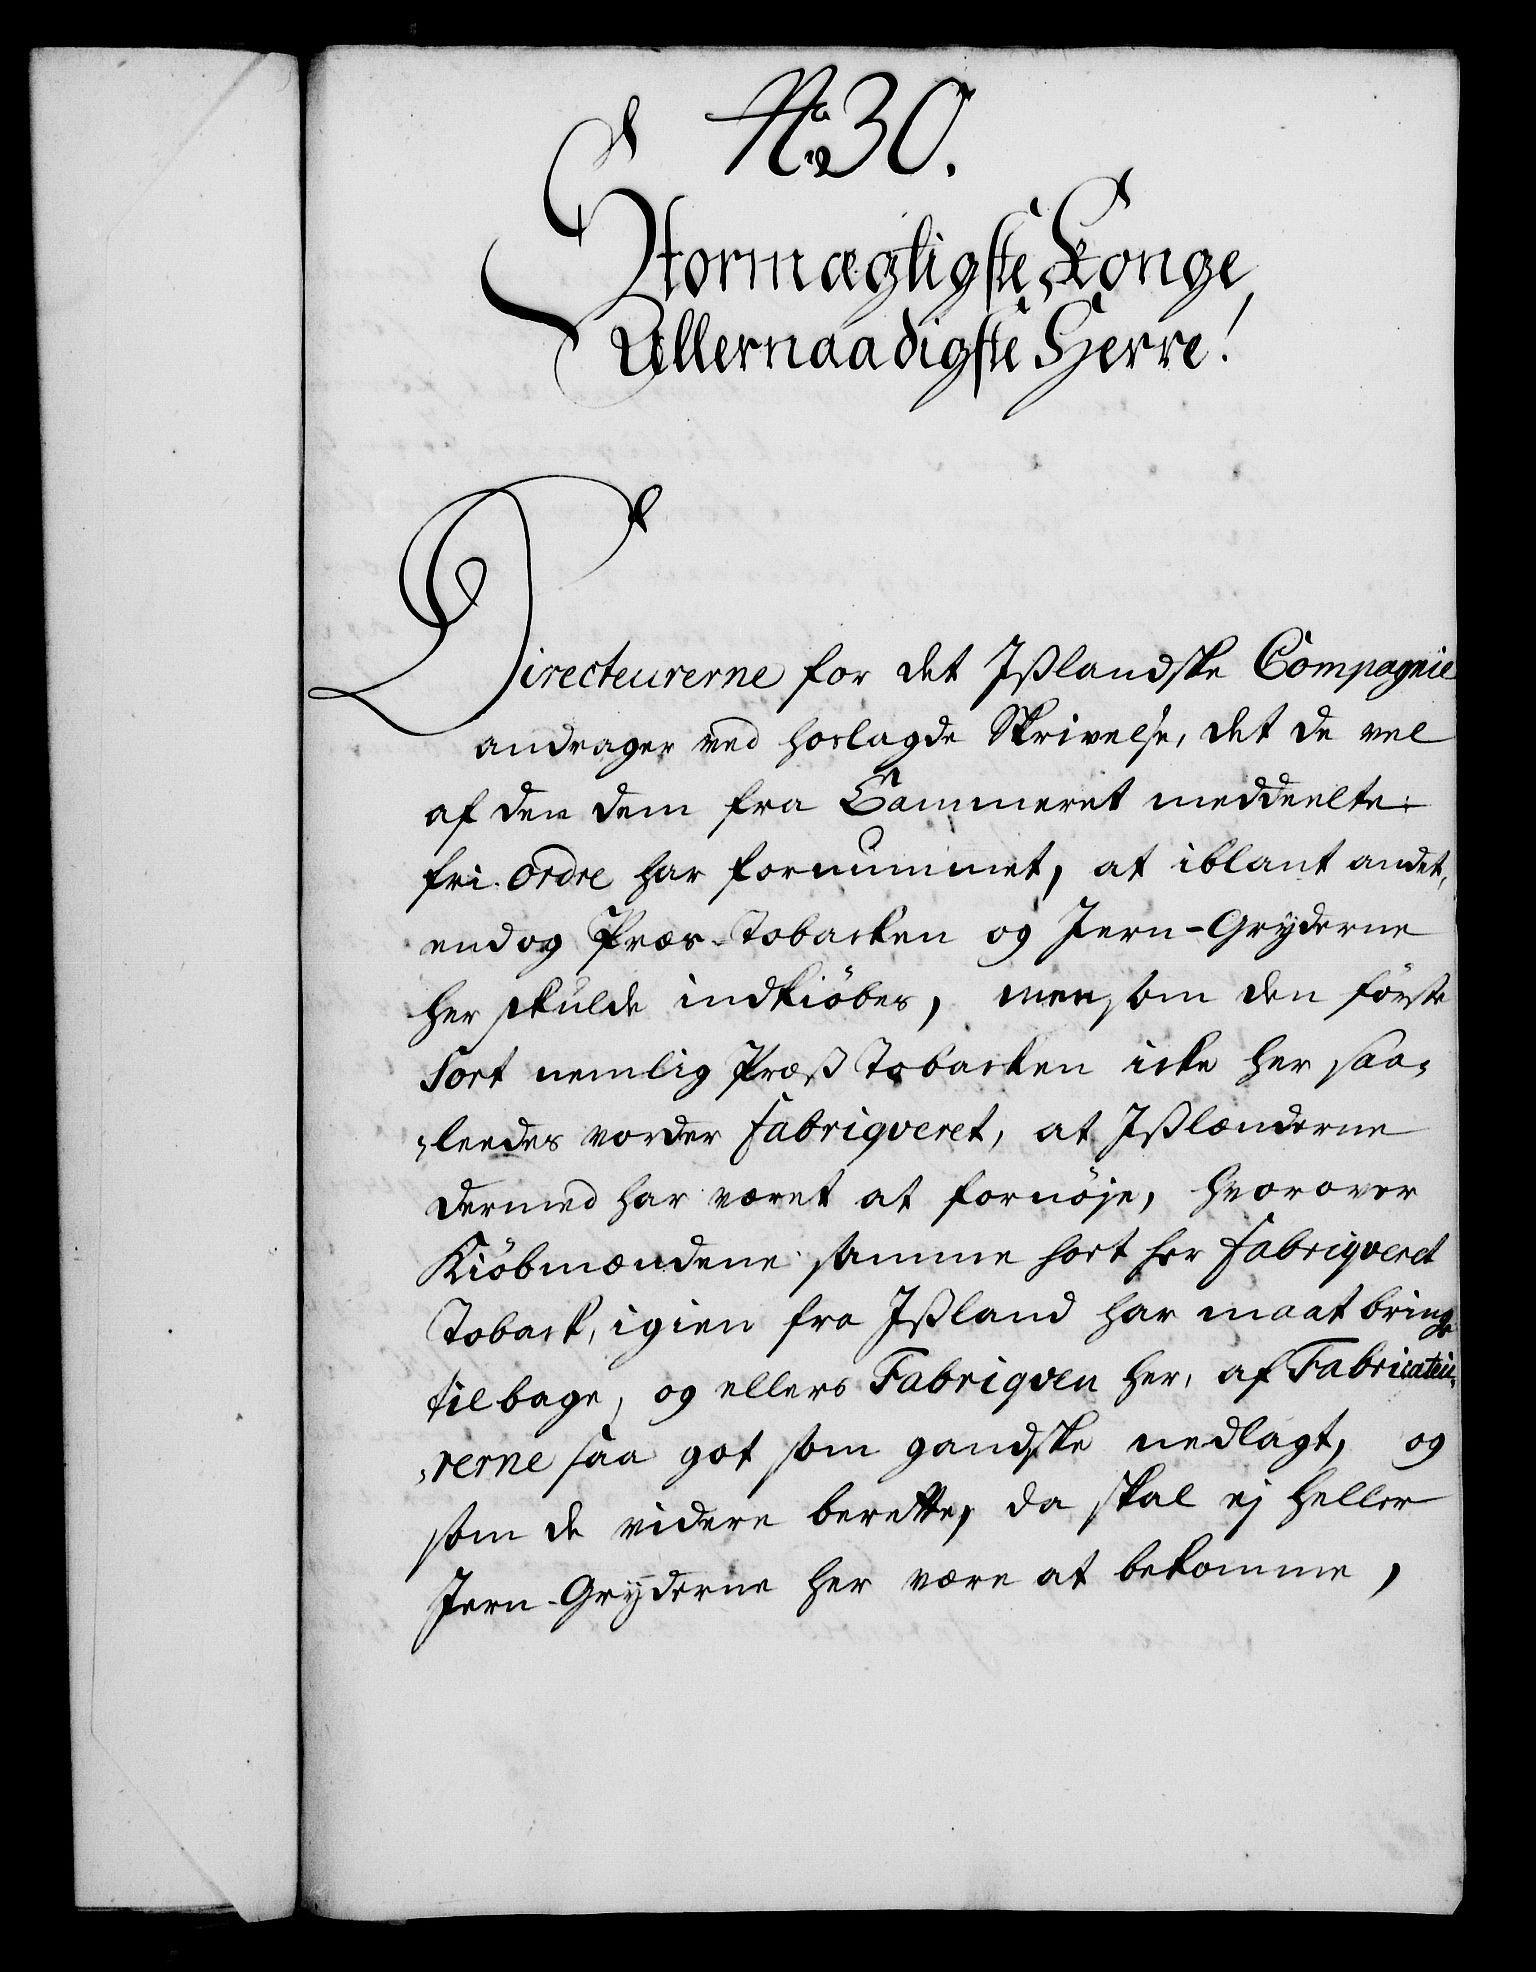 No. 30.
Stormægtigste Konge,
Allernaadigste Herre!
Directeurerne for det Ißlandske Compagnie
andrager ved hoslagde Skrivelse, det de vel
af den dem fra Cammeret meddeelte
fri. Ordre har fornummet, at iblant andet,
endog Præs-Tobacken og Jern-Gryderne
her skulde indkiöbes, men som den förste
Sort nemlig Præß Tobacken icke her saa-
leedes vorder fabriqveret, at Ißlænderne
dermed har været at fornöje, hvorover
Kiöbmændene samme Sort her fabriqveret
Toback, igien fra Ißland har maat bringe
tilbage, og ellers Fabriqven her, af Fabricateu-
rerne saa got som gandske nedlagt, og
som de videre berette, da skal ej heller
Jern-Gryderne her være at bekomme,